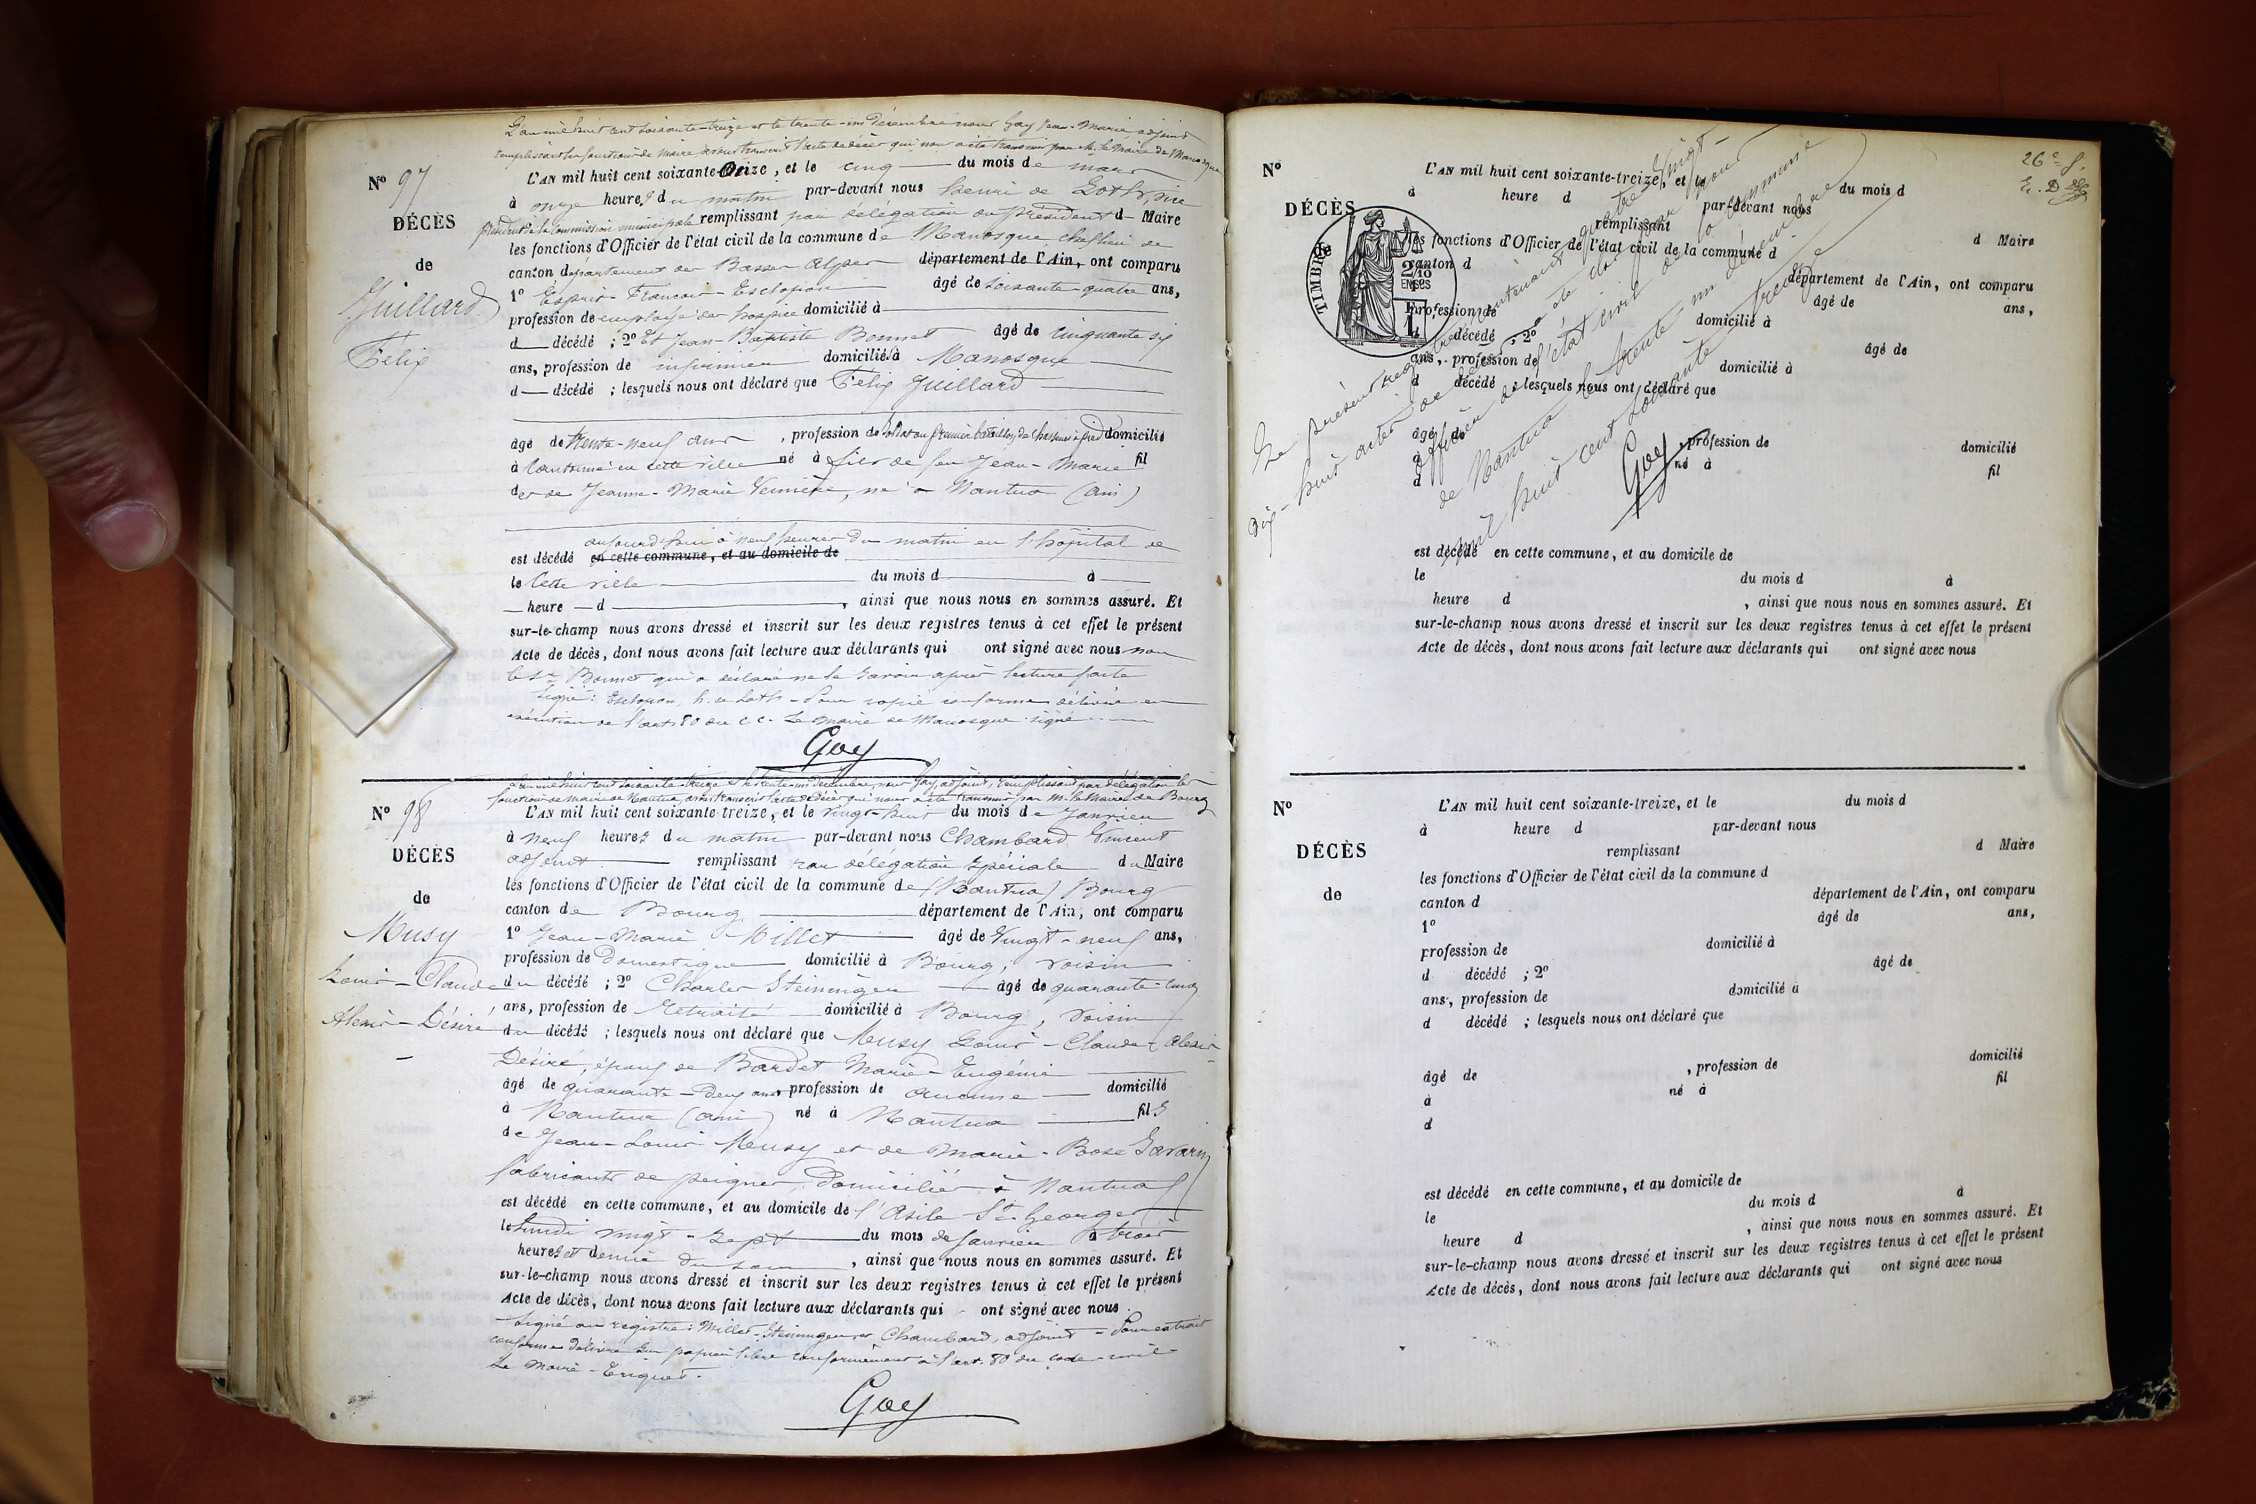 L'an mil huit cent soixante-treize et le trente-un décembre nous Gay Jean-Marie, adjoint
remplissant les fonctions de Maire avons transcrit l'acte de décès qui nous a été transmis par M. le Maire de Manosque
N° 97
DÉCÈS
de
Guillard
Félix
L'AN mil huit cent soixante-Onze, et le cinq du mois de mars
à onze heures du matin par-devant nous henri de Loth, vice
président de la Commission municipale remplissant par délégation du président d Maire
les fonctions d'Officier de l'état civil de la commune de Manosque, chef lieu de
canton département des Basses Alpes département de l'Ain, ont comparu
1° Esprit-François-Esclapon âgé de soixante-quatre ans,
profession de employé des hospices domicilié à
d décédé ; 2° Et Jean-Baptiste Bonnet âgé de cinquante six
ans, profession de infirmier domiciliés à Manosque
d décédé ; lesquels nous ont déclaré que Félix Guillard
âgé de trente-neuf ans, profession de soldat au premier bataillon de chasseurs à pied domicilié
à Cantonné en cette ville né à fils de feu Jean-Marie fil
de et de Jeanne-Marie Vernière, né à Nantua (ain)
aujourd'hui à neuf heures du matin en l'hôpital de
est décédé en cette commune, et au domicile de
le Cette ville du mois d à
heure d , ainsi que nous nous en sommes assuré. Et
sur-le-champ nous avons dressé et inscrit sur les deux registres tenus à cet effet le présent
Acte de décès, dont nous avons fait lecture aux déclarants qui ont signé avec nous non
le Sr Bonnet qui a déclaré ne le savoir après lecture faite
Signé : Esclapon, h. de Loth - Pour copie conforme délivrée en
exécution de l'art. 80 du C. C. Le Maire de Manosque signé
Gay
L'an mil huit cent soixante-treize et le trente-un décembre, nous Gay, adjoint, remplissant par délégation les
fonctions de Maire de Nantua, avons transcrit l'acte de décès qui nous a été transmis par M. le Maire de Bourg
N° 98
DÉCÈS
de
Musy
Louis-Claude
Alexis-Désiré
L'AN mil huit cent soixante-treize, et le vingt-huit du mois de Janvier
à neuf heures du matin par-devant nous Chambard Vincent
adjoint remplissant par délégation spéciale du Maire
les fonctions d'Officier de l'état civil de la commune de (Nantua) Bourg
canton de Bourg département de l'Ain, ont comparu
1° Jean-Marie Millet âgé de vingt-neuf ans,
profession de Domestique domicilié à Bourg, voisin
du décédé ; 2° Charles Steininger âgé de quarante-cinq
ans, profession de Retraité domicilié à Bourg, voisin
du décédé ; lesquels nous ont déclaré que Musy Louis-Claude-Alexis-
Désiré, époux de Bardet Marie-Eugénie
âgé de quarante-deux ans profession de aucune domicilié
à Nantua (ain) né à Nantua fils
de Jean-Louis Musy et de Marie-Rose Savarin
fabricants de peignes, domiciliés à Nantua
est décédé en cette commune, et au domicile de l'Asile St Georges
le lundi vingt-sept du mois de Janvier à trois
heures et demie du soir, ainsi que nous nous en sommes assuré. Et
sur-le-champ nous avons dressé et inscrit sur les deux registres tenus à cet effet le présent
Acte de décès, dont nous avons fait lecture aux déclarants qui ont signé avec nous.
Signé au registre : Millet, Steininger et Chambard, adjoint - Pour extrait
conforme délivré sur papier libre conformément à l'art. 80 du code civil
Le Maire -
Gay
26e f.
N°
DÉCÈS
de
TIMBRE
2/10
EN SUS
L'AN mil huit cent soixante-treize, et le du mois d
à heure d par-devant nous
remplissant d Maire
les fonctions d'Officier de l'état civil de la commune d
canton d département de l'Ain, ont comparu
1° âgé de ans,
profession de domicilié à
d décédé ; 2° âgé de
ans, profession de domicilié à
d décédé ; lesquels nous ont déclaré que
âgé de , profession de domicilié
à né à fil
d
est décédé en cette commune, et au domicile de
le du mois d à
heure d , ainsi que nous nous en sommes assuré. Et
sur-le-champ nous avons dressé et inscrit sur les deux registres tenus à cet effet le présent
Acte de décès, dont nous avons fait lecture aux déclarants qui ont signé avec nous
Le présent registre contenant quatre-vingt-
dix-huit actes de décès, a été clos par nous
officier de l'état civil de la commune
de Nantua le trente un décembre
mil huit cent soixante treize
Gay
N°
DÉCÈS
de
L'AN mil huit cent soixante-treize, et le du mois d
à heure d par-devant nous
remplissant d Maire
les fonctions d'Officier de l'état civil de la commune d
canton d département de l'Ain, ont comparu
1° âgé de ans,
profession de domicilié à
d décédé ; 2° âgé de
ans, profession de domicilié à
d décédé ; lesquels nous ont déclaré que
âgé de , profession de domicilié
à né à fil
d
est décédé en cette commune, et au domicile de
le du mois d à
heure d , ainsi que nous nous en sommes assuré. Et
sur-le-champ nous avons dressé et inscrit sur les deux registres tenus à cet effet le présent
Acte de décès, dont nous avons fait lecture aux déclarants qui ont signé avec nous